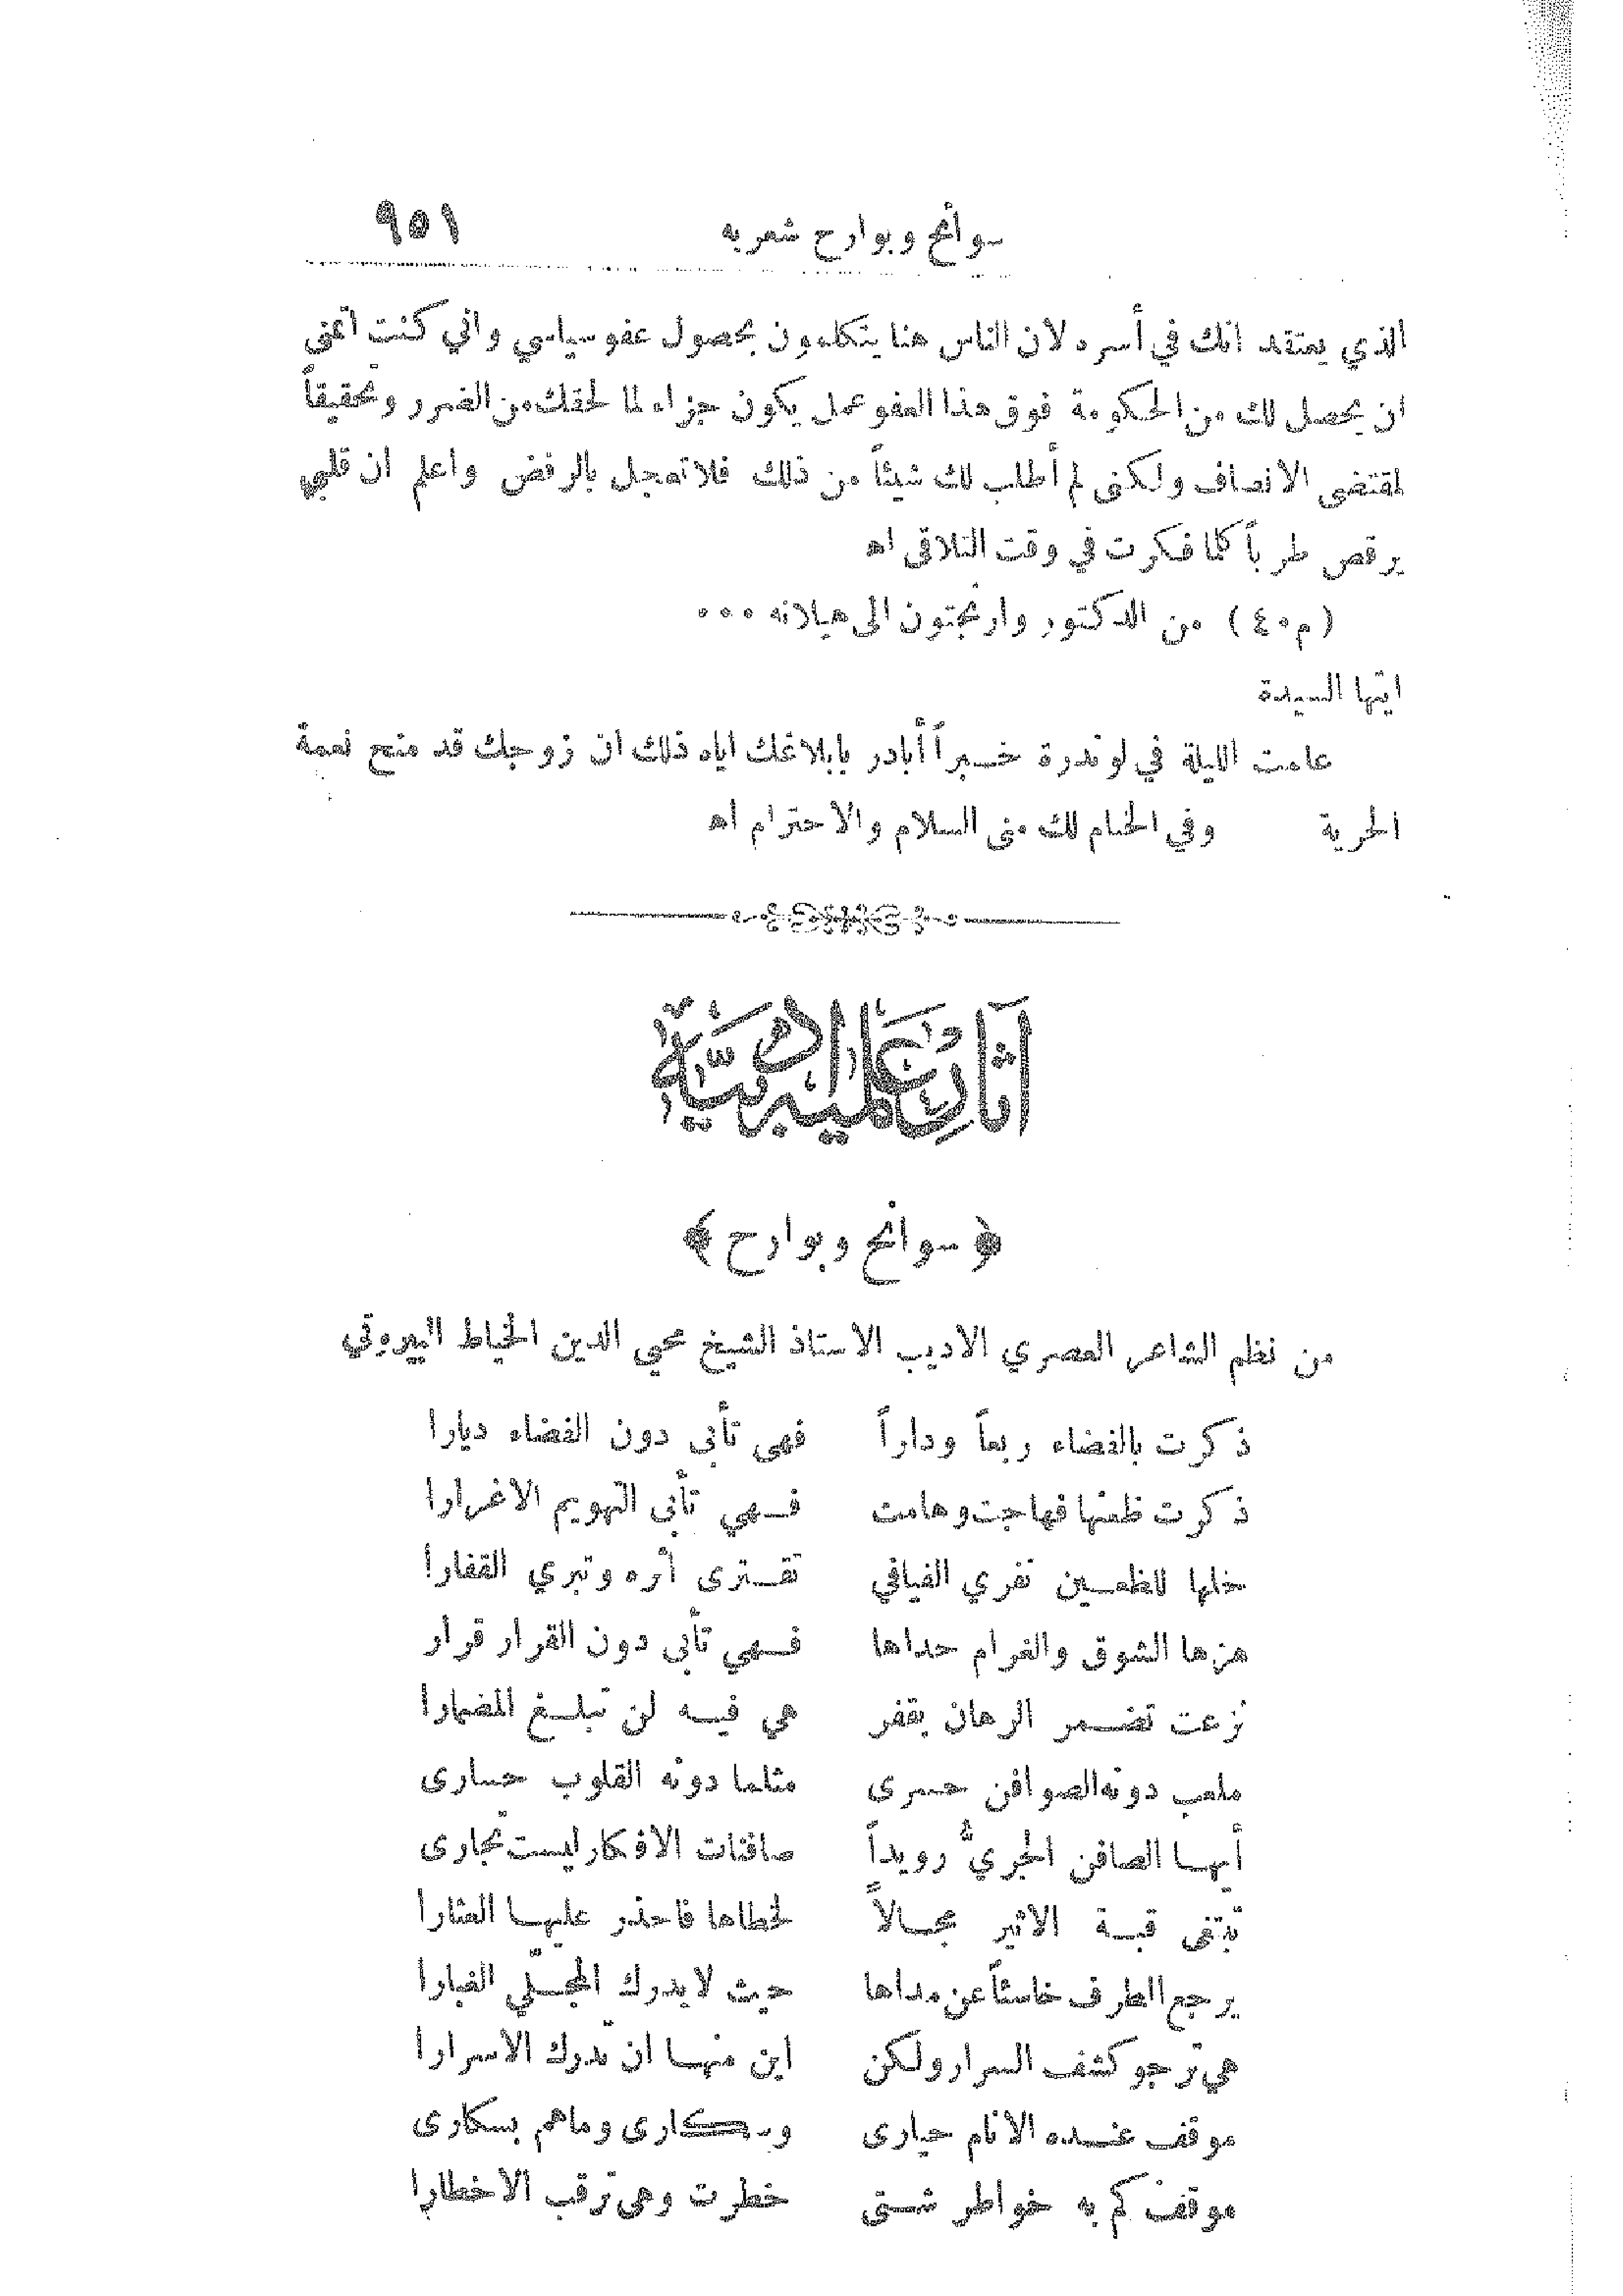 سوانح وبوارح شعريه ٩٥١
الذي يعتقد انك في أسره لان الناس هنا يتكلمون بحصول عفو سياسي واني كنت اتمنى
ان يحصل لك من الحكومة فوق هذا العفو عمل يكون جزاء لما لحقك من الضرر وتحقيقاً
لمقتضى الانصاف ولكني لم أطلب لك شيئاً من ذلك فلا تعجل بالرفض واعلم ان قلبي
يرقص طرباً كلما فكرت في وقت التلاقي اه
(م ٤٠) من الدكتور وارنجتون الى هيلانه ...
ايتها السيدة
علمت الليلة في لوندرة خبراً أبادر بابلاغك اياه ذلك ان زوجك قد منح نعمة
الحرية وفي الختام لك مني السلام والاحترام اه
آثار علمية ادبية
﴿ سوانح وبوارح ﴾
من نظم الشاعر العصري الاديب الاستاذ الشيخ محيي الدين الخياط البيروتي
ذكرت بالفضاء ربعاً وداراً فهي تأبى دون الفضاء ديارا
ذكرت ظعنها فهاجت وهامت فهي تأبى التهويم الا غرارا
خلها للظعين تفري الفيافي تقترى اثره وتبري القفارا
هزها الشوق والغرام حداها فهي تأبى دون القرار قرار
نزعت تضمر الرهان بقفر هي فيه لن تبلغ المضمارا
ملعب دونه الصوافن حسرى مثلما دونه القلوب حسارى
أيها الصافن الجريُّ رويداً صافنات الافكار ليست تجارى
تبتغي قبة الاثير مجالاً لخطاها فاحذر عليها العثارا
يرجع الطرف خاسئاً عن مداها حيث لا يدرك المجلّي الغبارا
هي ترجو كشف السرار ولكن اين منها ان تدرك الاسرارا
موقف عنده الانام حيارى وسكارى وما هم بسكارى
موقف كم به خواطر شتى خطرت وهي ترقب الاخطارا